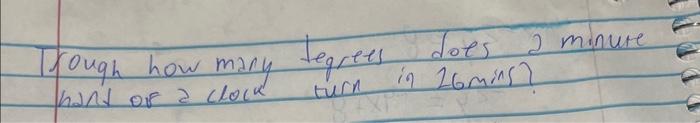 Trough how many degrees does a minute
hand of a clock turn in 26mins?